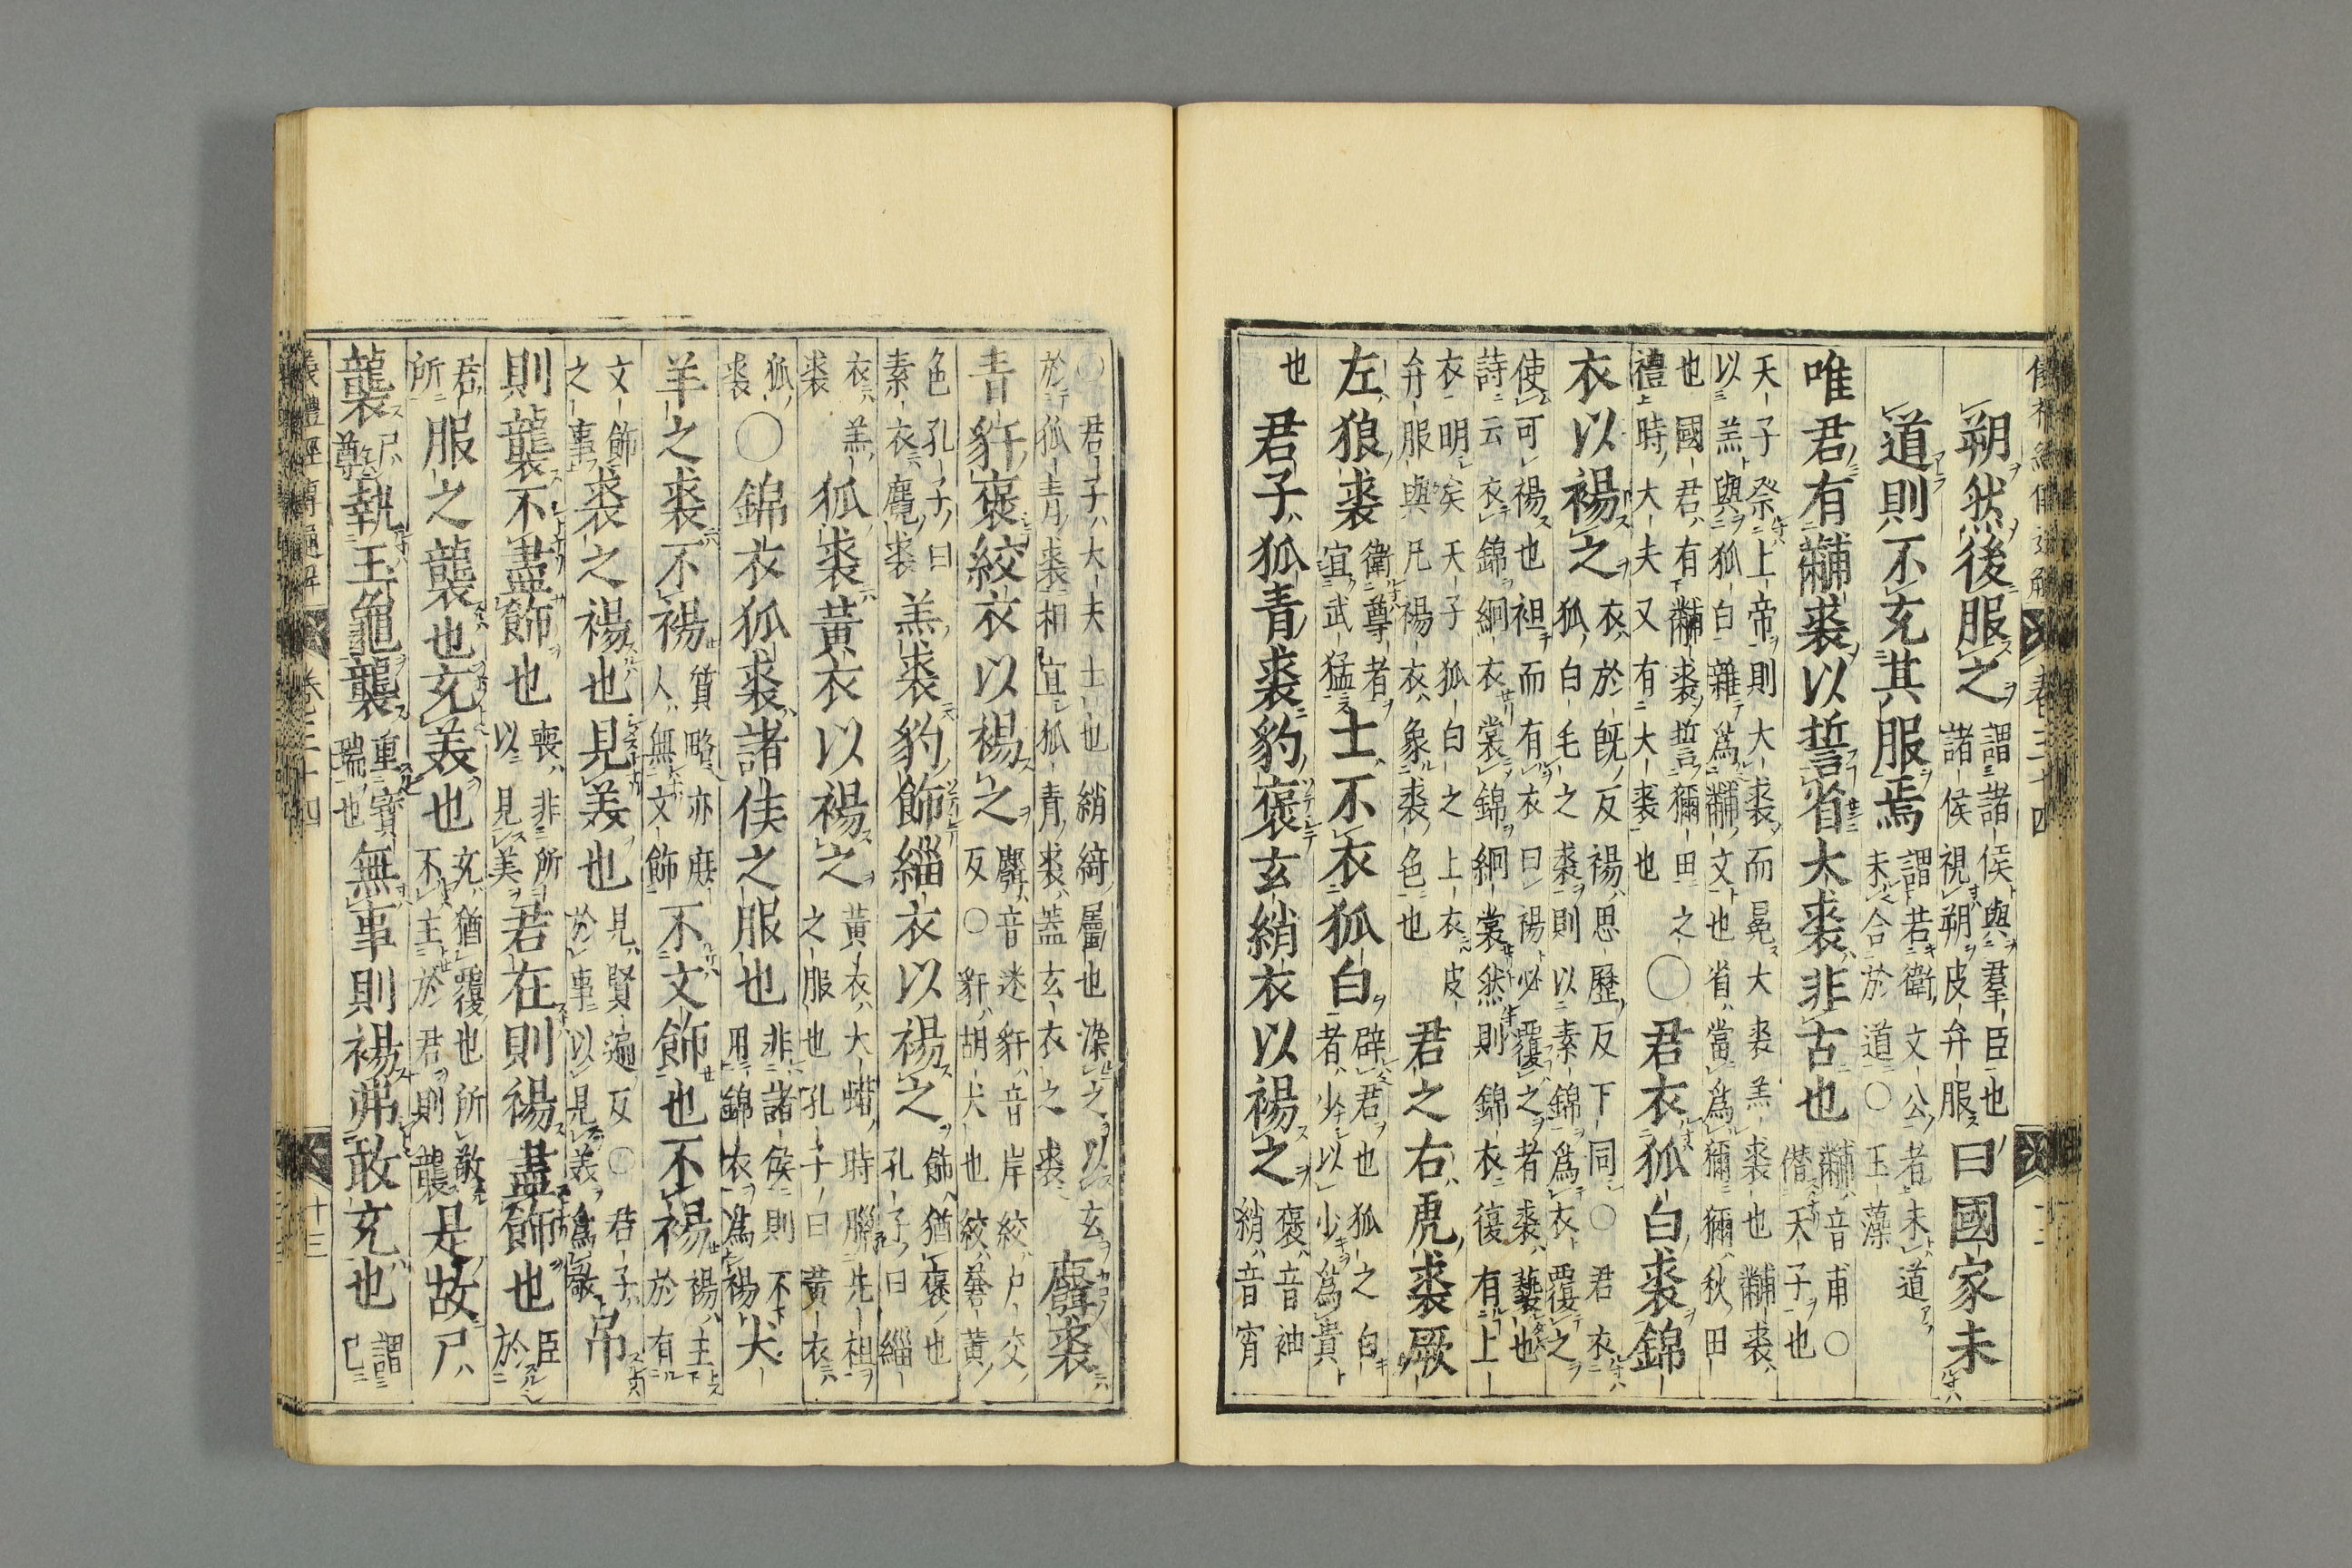 儀禮經傳通解 卷二十四
朔然後服之 謂諸侯與羣臣也 諸侯視朔皮弁服 曰國家未
道則不充其服焉 謂若衛文公者未道 未合於道○玉藻
唯君有黼裘以誓省大裘非古也 黼音甫○ 僭天子也
天子祭上帝則大裘而冕大裘羔裘也黼裘 以羔與狐白雜為黼文也省當為獮獮秋田
也國君有黼裘誓獮田之 禮時大夫又有大裘也 ○君衣狐白裘錦
衣以裼之 衣於既反裼思歷反下同○君衣 狐白毛之裘則以素錦為衣覆之
使可裼也袒而有衣曰裼必覆之者裘褻也 詩云衣錦絅衣裳錦絅裳然則錦衣復有上
衣明矣天子狐白之上衣皮 弁服與凡裼衣象裘色也 君之右虎裘厥
左狼裘 衛尊者 宜武猛 士不衣狐白 辟君也狐之白 者少以少為貴
也 君子狐青裘豹褎玄綃衣以裼之 褎音袖 綃音宵
○君子大夫士也綃綺屬也染之以玄 於狐青裘相宜狐青裘蓋玄衣之裘 麛裘
青豻褎絞衣以裼之 麛音迷豻音岸絞户交 反○豻胡犬也絞蒼黃
色孔子曰 素衣麛裘 羔裘豹飾緇衣以裼之 飾猶褎也 孔子曰緇
衣羔 裘 狐裘黃衣以裼之 黃衣大蜡時臘先祖 之服也孔子曰黃衣
狐 裘 ○錦衣狐裘諸侯之服也 非諸侯則不 用錦衣為裼 犬
羊之裘不裼 質略亦庶 人無文飾 不文飾也不裼 裼主 於有
文飾 之事 裘之裼也見美也 見賢遍反○君子 於事以見美為敬 吊
則襲不盡飾也 喪非所 以見美 君在則裼盡飾也 臣 於
君 所 服之襲也充美也 充猶覆也所敬 不主於君則襲 是故尸
襲 尸 尊 執玉龜襲 重寶 瑞也 無事則裼弗敢充也 謂 已
儀禮經傳通解 卷二十四 十三